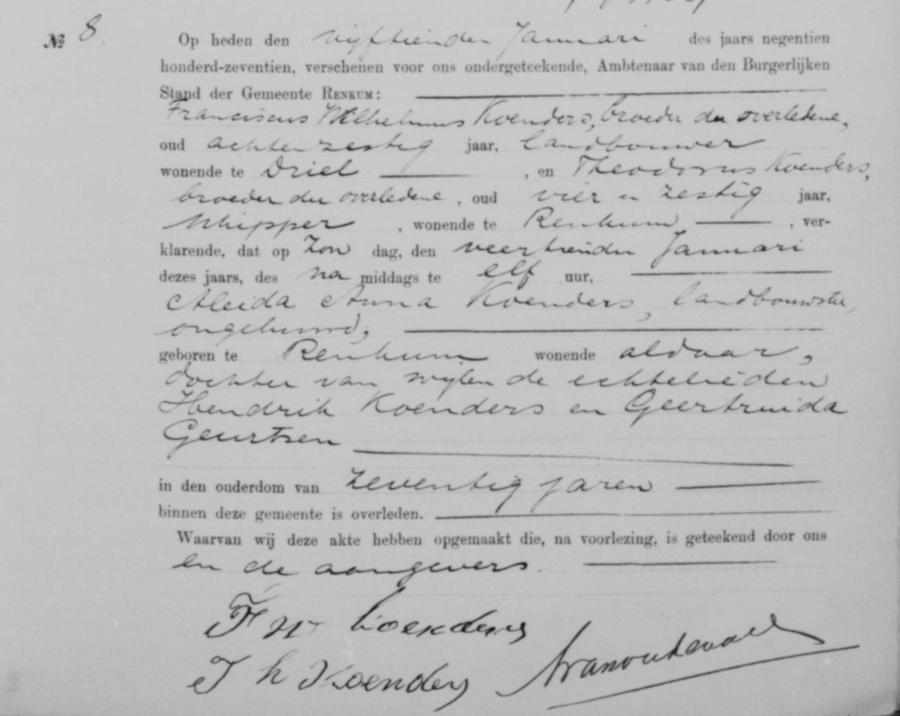 № 8.
Op heden den vijftienden Januari des jaars negentien
honderd-zeventien, verschenen voor ons ondergeteekende, Ambtenaar van den Burgerlijken
Stand der Gemeente RENKUM:
Franciscus Wilhelmus Koenders, broeder der overledene,
oud achtenzestig jaar, landbouwer
wonende te Driel, en Theodorus Koenders,
broeder der overledene, oud vier en zestig jaar,
schipper, wonende te Renkum, ver-
klarende, dat op Zon dag, den veertienden Januari
dezes jaars, des na middags te elf uur,
Aleida Anna Koenders, landbouwster,
ongehuwd,
geboren te Renkum wonende aldaar,
dochter van wijlen de echtelieden
Hendrik Koenders en Geertruida
Geurtsen
in den ouderdom van zeventig jaren
binnen deze gemeente is overleden.
Waarvan wij deze akte hebben opgemaakt die, na voorlezing, is geteekend door ons
en de aangevers.
F W Koenders
Th Koenders